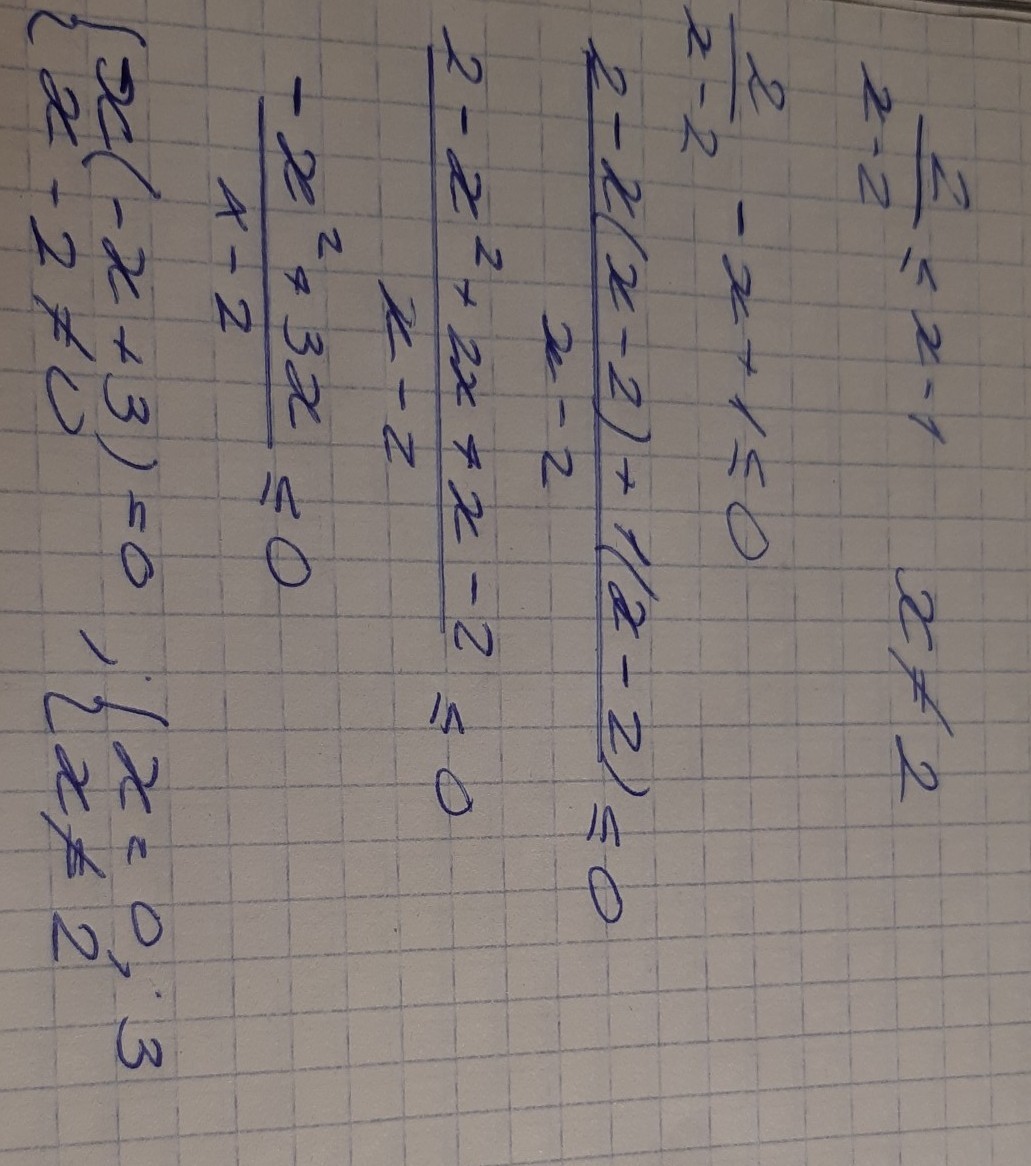 2/(x-2) ≤ x-1     x ≠ 2
2/(x-2) - x + 1 ≤ 0
(2 - x(x-2) + 1(x-2))/(x-2) ≤ 0
(2 - x² + 2x + x - 2)/(x-2) ≤ 0
(-x² + 3x)/(x-2) ≤ 0
{x(-x+3) = 0 , {x = 0; 3
{x - 2 ≠ 0     {x ≠ 2